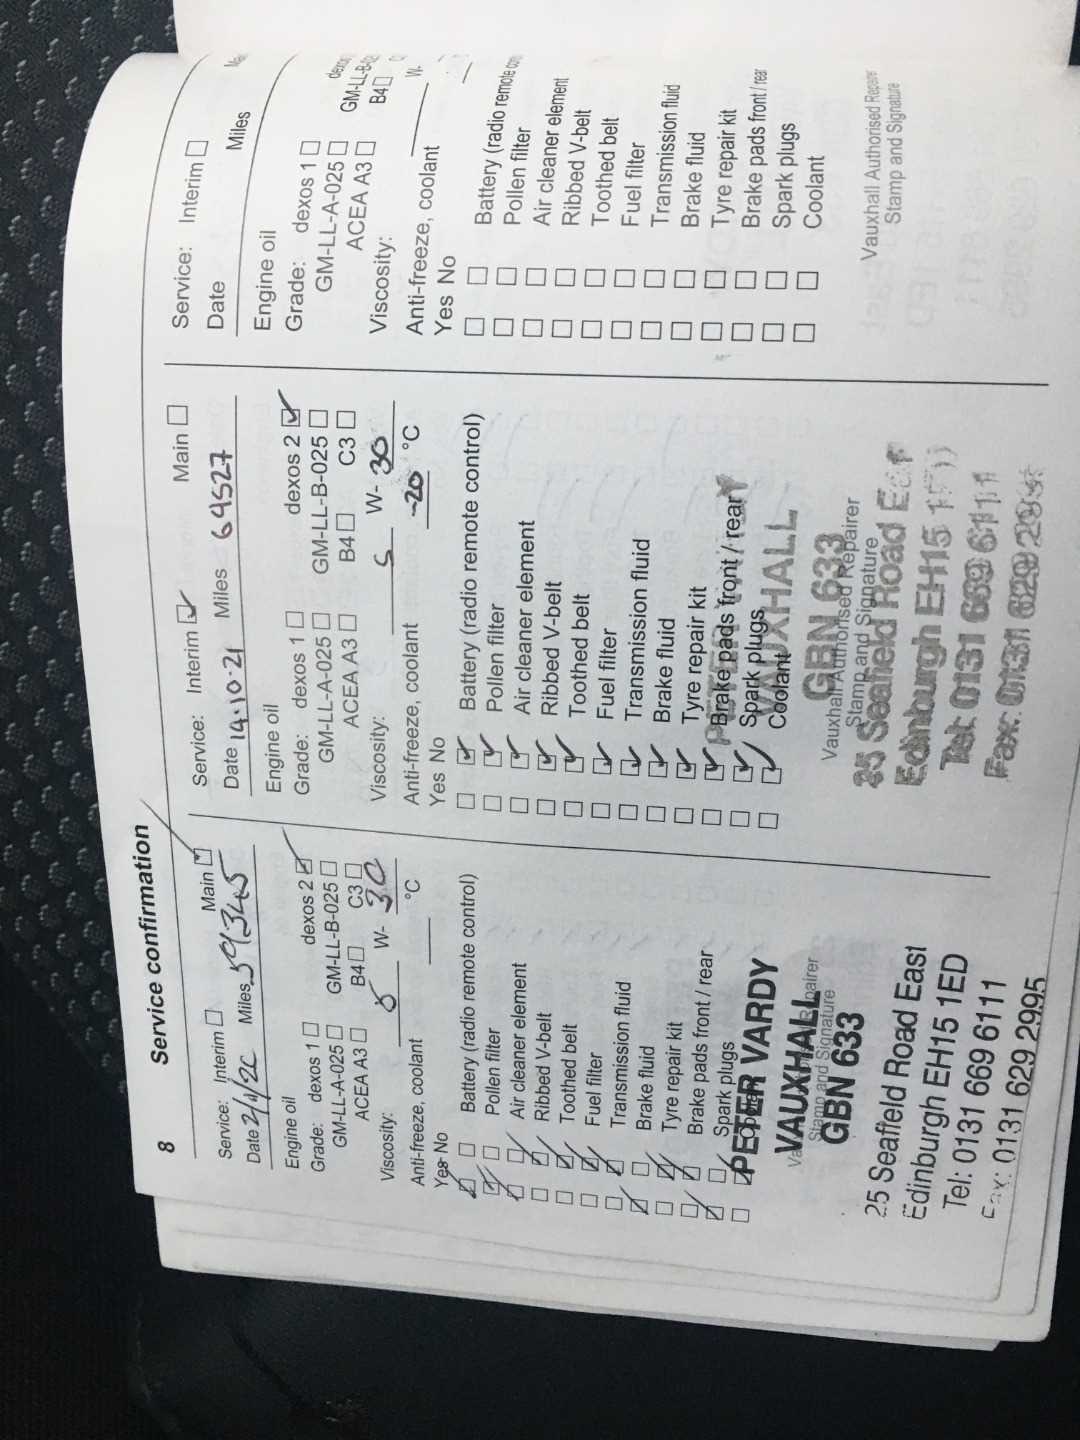 8 Service confirmation
Service: Interim Main
Date 2/11/20 Miles 59345
Engine oil
Grade: dexos 1 dexos 2
GM-LL-A-025 GM-LL-B-025
ACEA A3 B4 C3
Viscosity: 5 W- 30
Anti-freeze, coolant °C
Yes No
Battery (radio remote control)
Pollen filter
Air cleaner element
Ribbed V-belt
Toothed belt
Fuel filter
Transmission fluid
Brake fluid
Tyre repair kit
Brake pads front / rear
Spark plugs
PETER VARDY
VAUXHALL
Stamp and Signature
GBN 633
25 Seafield Road East
Edinburgh EH15 1ED
Tel: 0131 669 6111
Fax: 0131 629 2995
Service: Interim Main
Date 14-10-21 Miles 69527
Engine oil
Grade: dexos 1 dexos 2
GM-LL-A-025 GM-LL-B-025
ACEA A3 B4 C3
Viscosity: 5 W- 30
Anti-freeze, coolant -20 °C
Yes No
Battery (radio remote control)
Pollen filter
Air cleaner element
Ribbed V-belt
Toothed belt
Fuel filter
Transmission fluid
Brake fluid
Tyre repair kit
Brake pads front / rear
Spark plugs
Coolant
PETER VARDY
VAUXHALL
GBN 633
Vauxhall Authorised Repairer
Stamp and Signature
25 Seafield Road East
Edinburgh EH15
Tel: 0131 669 6111
Fax: 0131 629
Service: Interim
Date Miles
Engine oil
Grade: dexos 1 dexos
GM-LL-A-025 GM-LL-B-02
ACEA A3 B4
Viscosity: W-
Anti-freeze, coolant
Yes No
Battery (radio remote con
Pollen filter
Air cleaner element
Ribbed V-belt
Toothed belt
Fuel filter
Transmission fluid
Brake fluid
Tyre repair kit
Brake pads front / rear
Spark plugs
Coolant
Vauxhall Authorised Repairer
Stamp and Signature